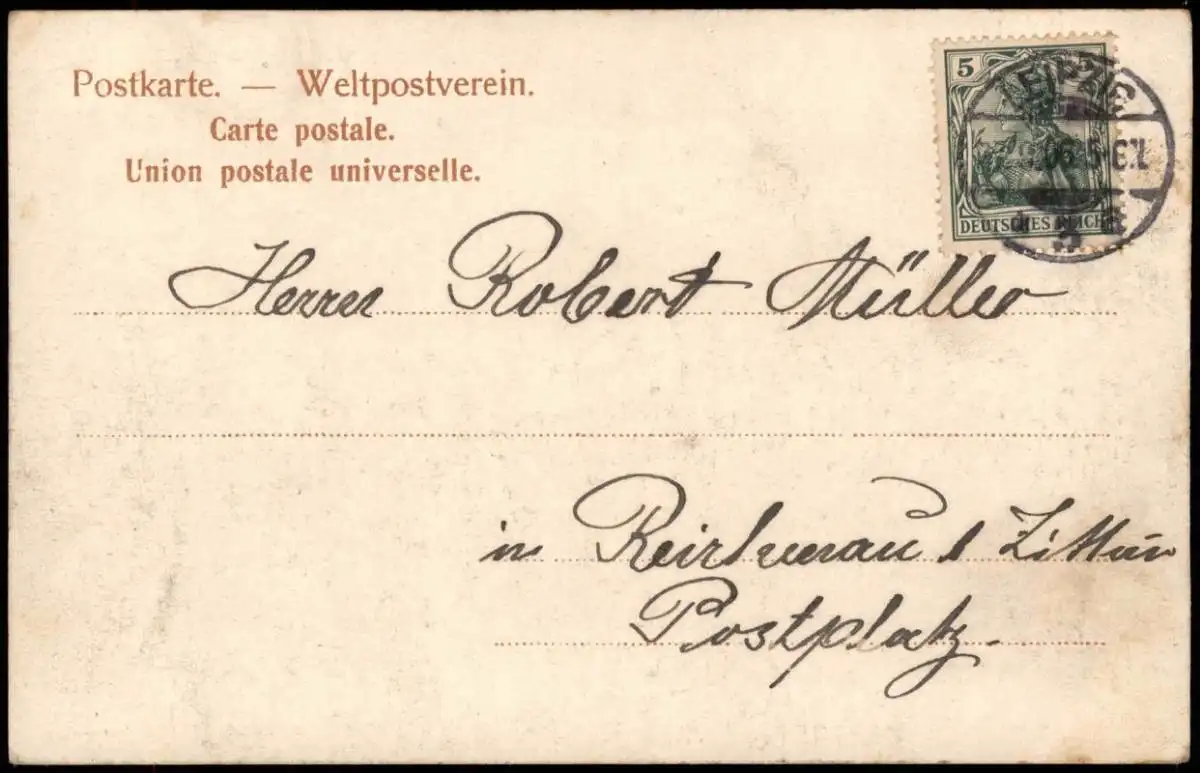 Postkarte. — Weltpostverein.
Carte postale.
Union postale universelle.
5
DEUTSCHES REICH
LEIPZIG
Herrn Robert Müller
in Reichenau b Zittau
Postplatz.